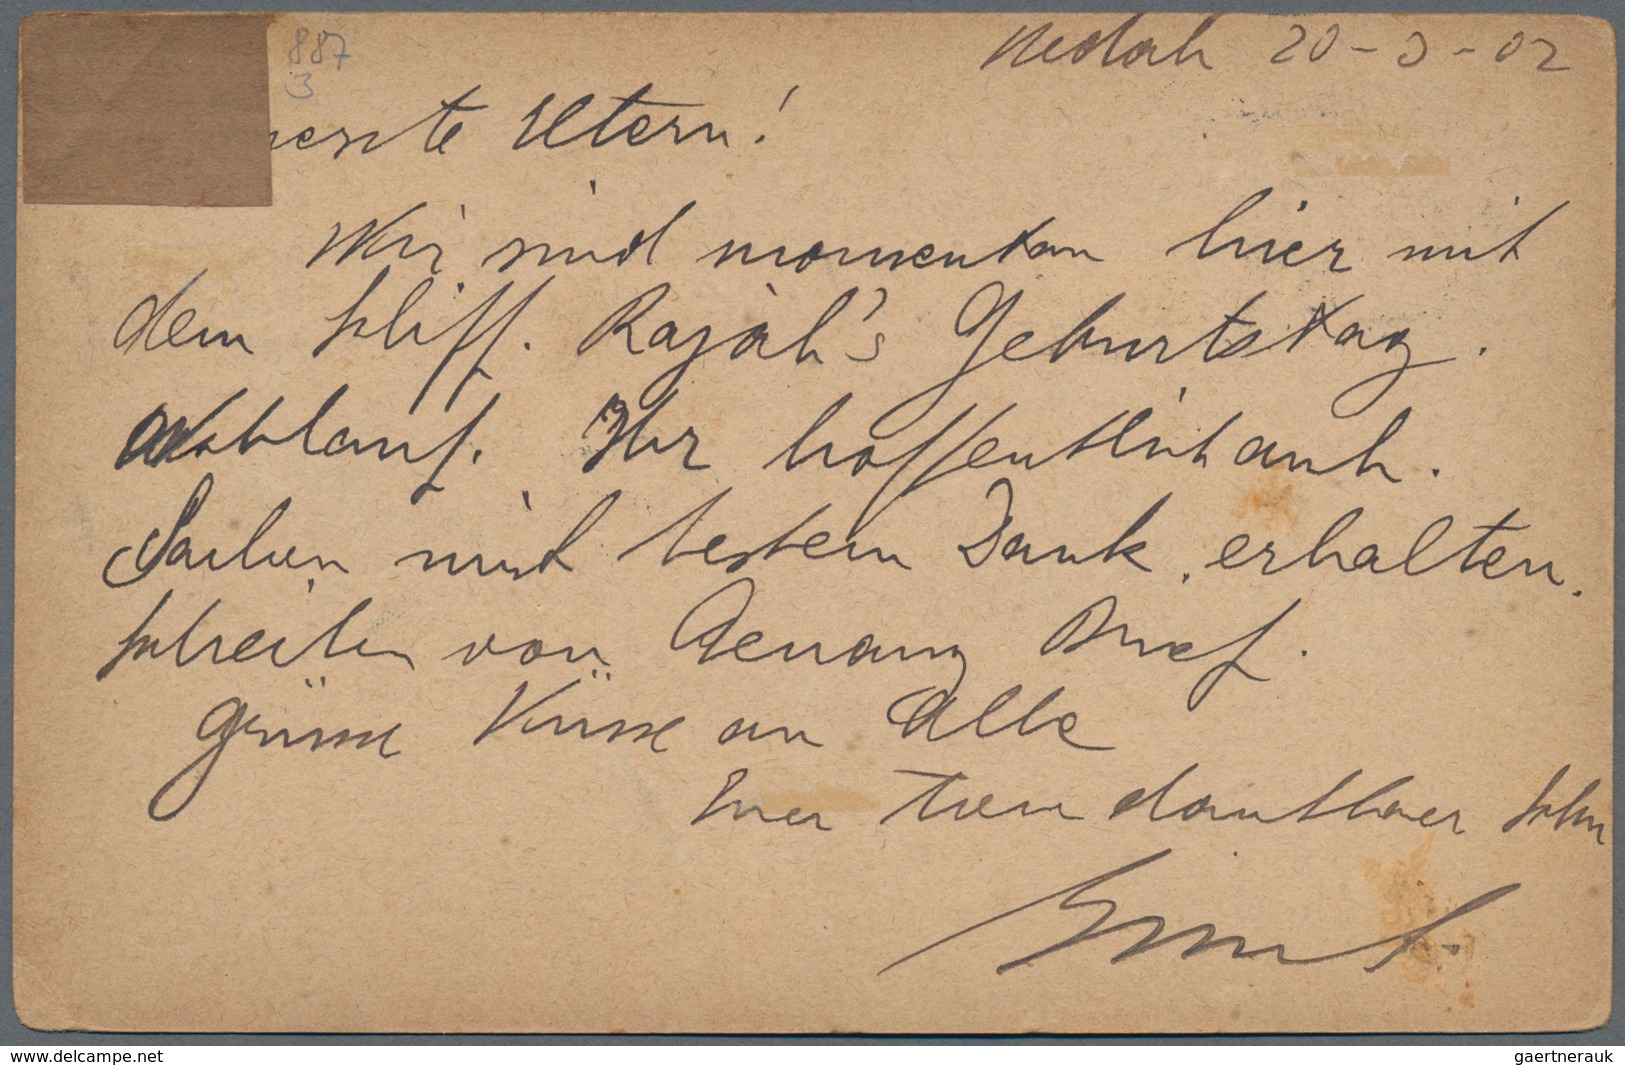 Kedah 20-3-02
887
3
erste Eltern!
Wir sind momentan hier mit
dem Schiff. Rajah's Geburtstag.
Wohlauf. Ihr hoffentlich auch.
Sachen mit bestem Dank erhalten.
schreiben von Penang Brief.
Grüsse Küsse an Alle
Euer treu dankbarer Sohn
www.delcampe.net
gaertnerauk